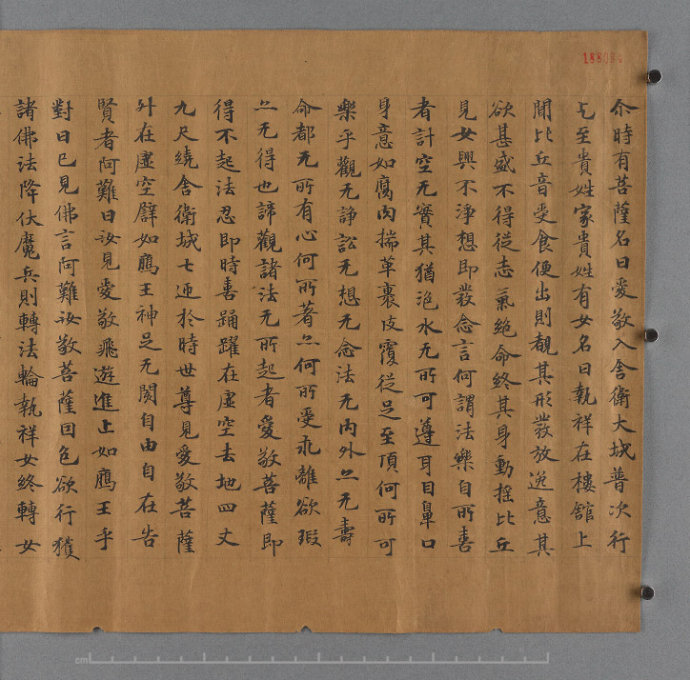 尒時有菩薩名曰愛敬入舍衛大城普次行
乞至貴姓家貴姓有女名曰執祥在樓舘上
聞比丘音受食便出則覩其形發放逸意其
欲甚盛不得從志氣絕命終其身動搖比丘
見女興不淨想即發念言何謂法樂自所喜
者計空无實其猶泡水无所可遵耳目鼻口
身意如腐肉揣草裹皮覆從足至頂何所可
樂乎觀无諍訟无想无念法无內外亦无壽
命都无所有心何所著亦何所受乖離欲瑕
亦无得也諦觀諸法无所起者愛敬菩薩即
得不起法忍即時喜踊躍在虛空去地四丈
九尺繞舍衛城七迊於時世尊見愛敬菩薩
外在虛空譬如鴈王神足无閡自由自在告
賢者阿難曰汝見愛敬飛遊進止如鴈王乎
對曰已見佛言阿難汝敬菩薩回色欲行獲
諸佛法降伏魔兵則轉法輪執祥女終轉女
cm